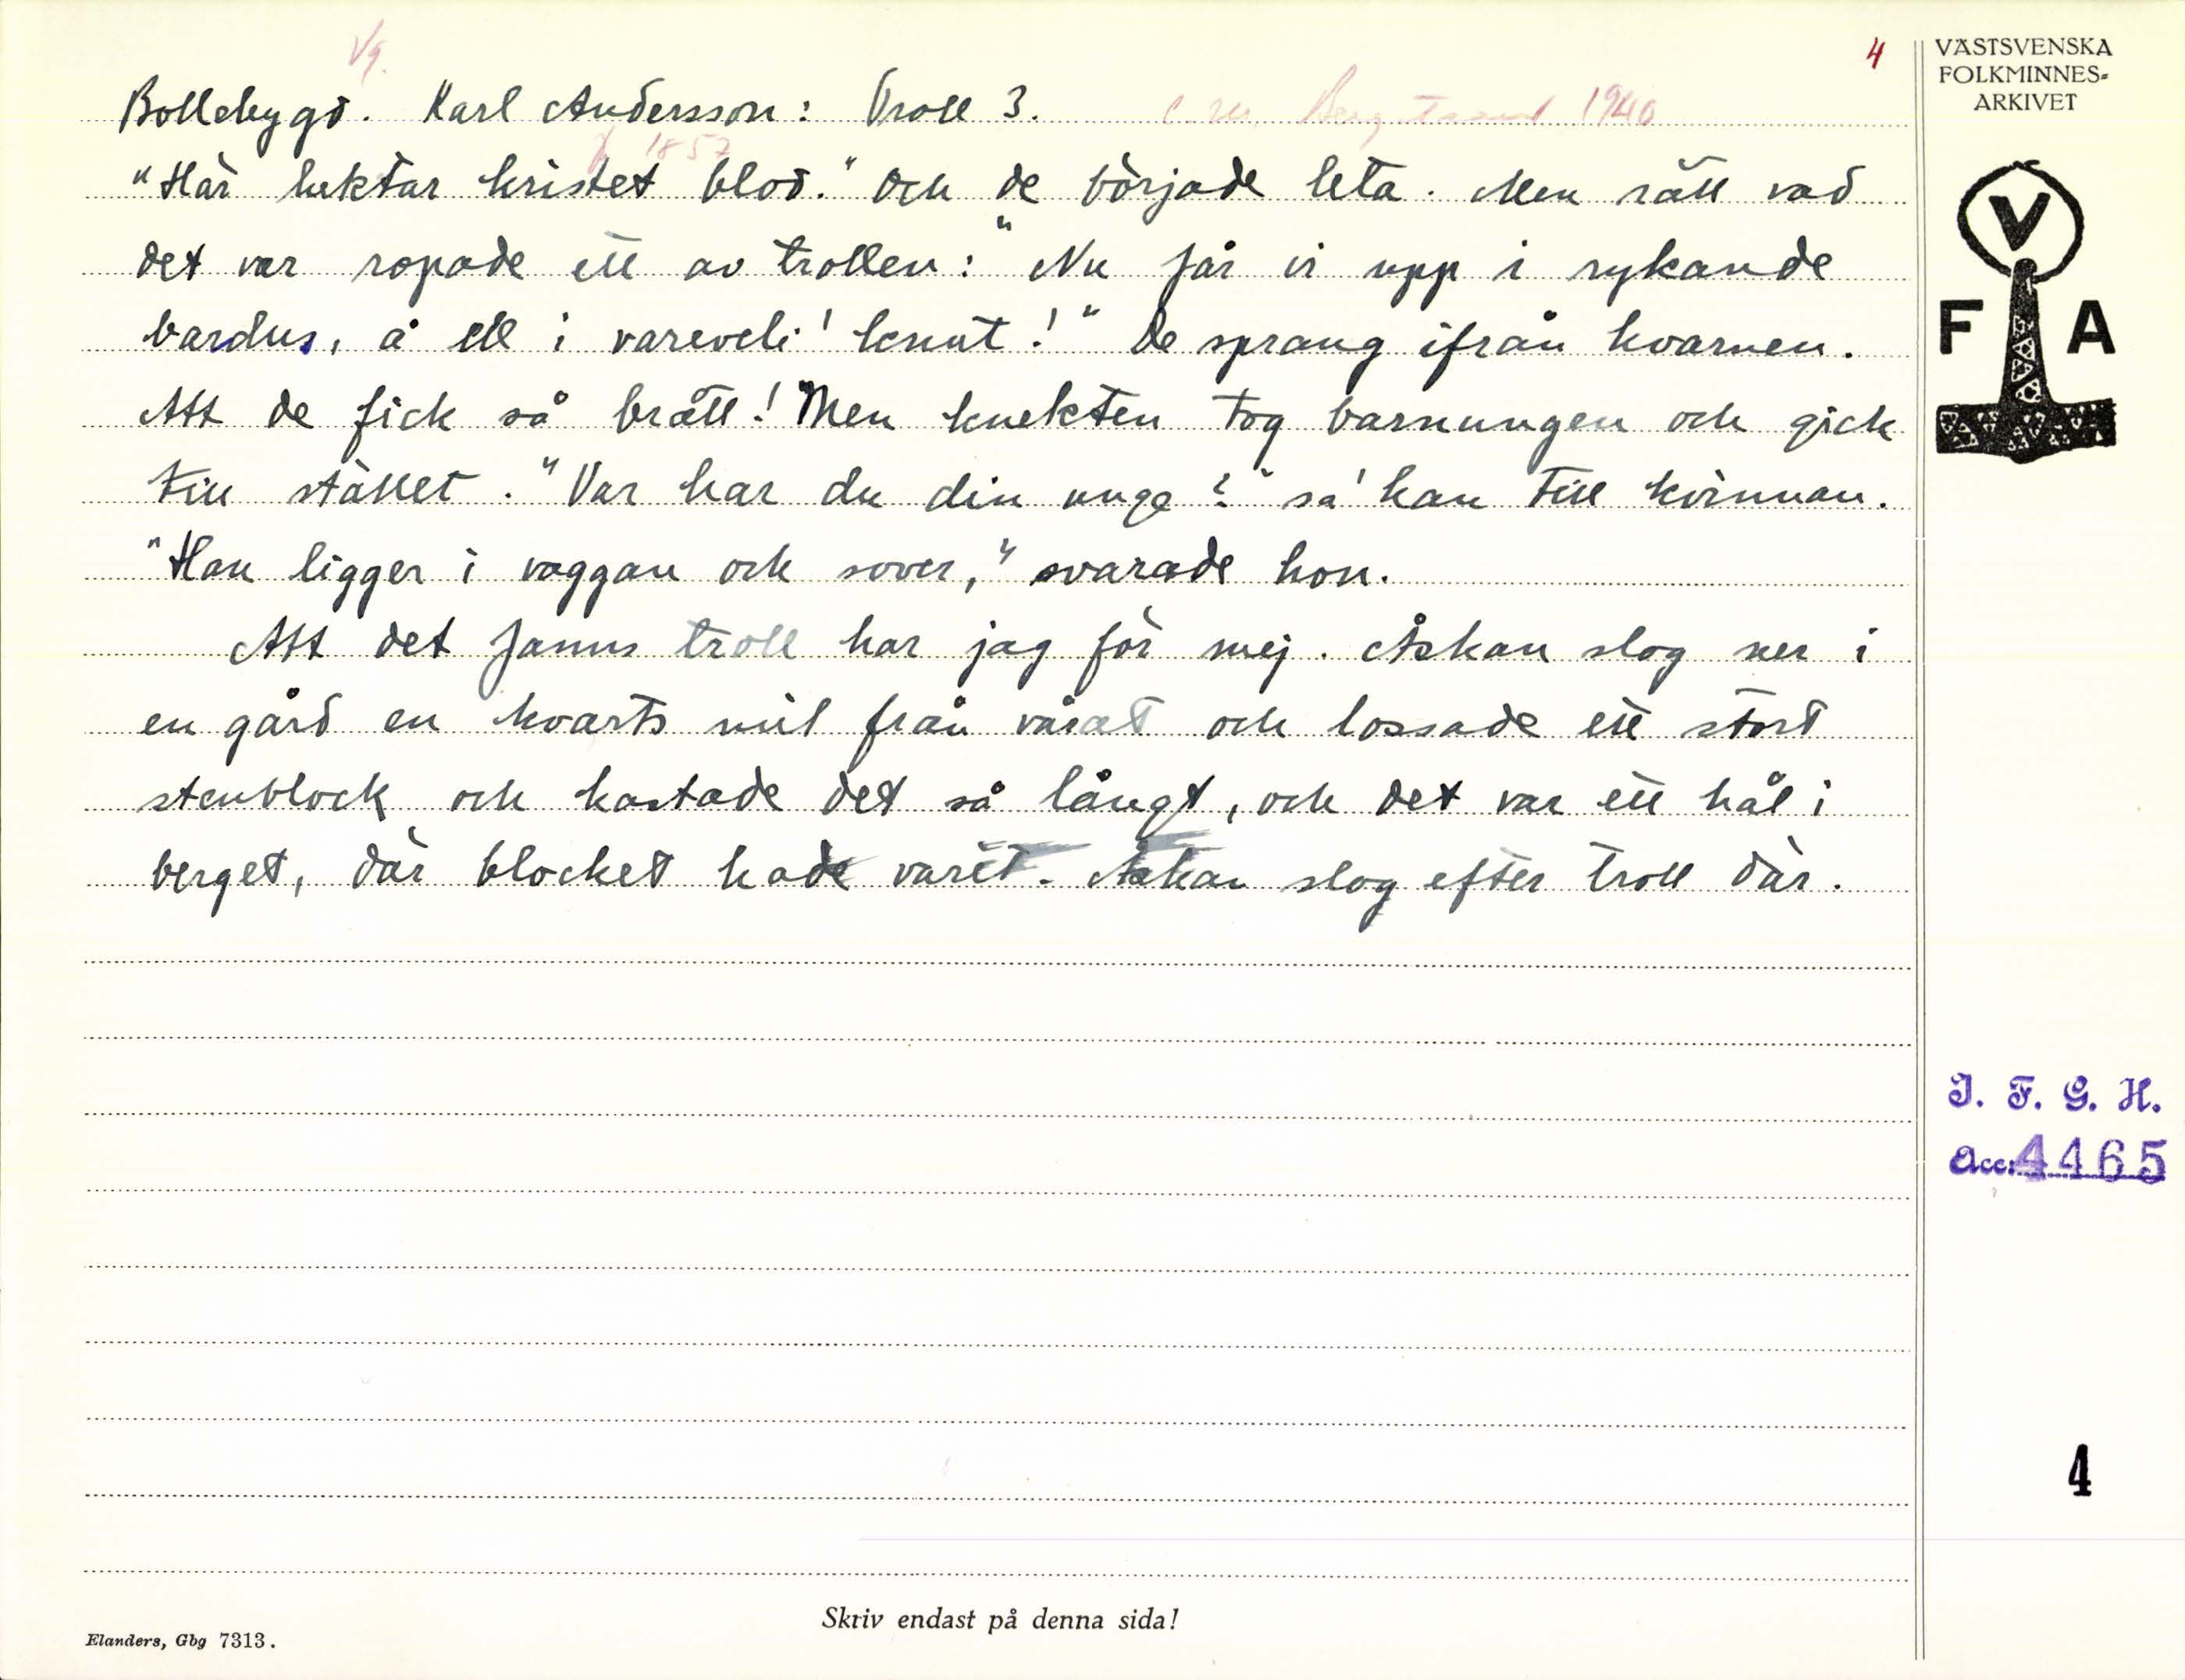 Vg.
4
Bollebygd. Karl Andersson: Troll 3. C.M. Bergstrand 1940
f 1857
"Här luktar kristet blod." Och de började leta. Men rätt vad
det var ropade ett av trollen: "Nu får vi upp i rykande
bardus, å ell i vareveli! knut!" De sprang ifrån kvarnen.
Att de fick så brått! Men knekten tog barnungen och gick
till stället. "Var har du din unge?" sa' han till kvinnan.
"Han ligger i vaggan och sover," svarade hon.
Att det fanns troll har jag för mej. Åskan slog ner i
en gård en kvarts mil från vårat och lossade ett stort
stenblock och kastade det så långt, och det var ett hål i
berget, där blocket hade varit. Åskan slog efter troll där.
VÄSTSVENSKA
FOLKMINNES-
ARKIVET
V
F A
I. F. G. H.
Acc: 4465
4
Skriv endast på denna sida!
Elanders, Gbg 7313.